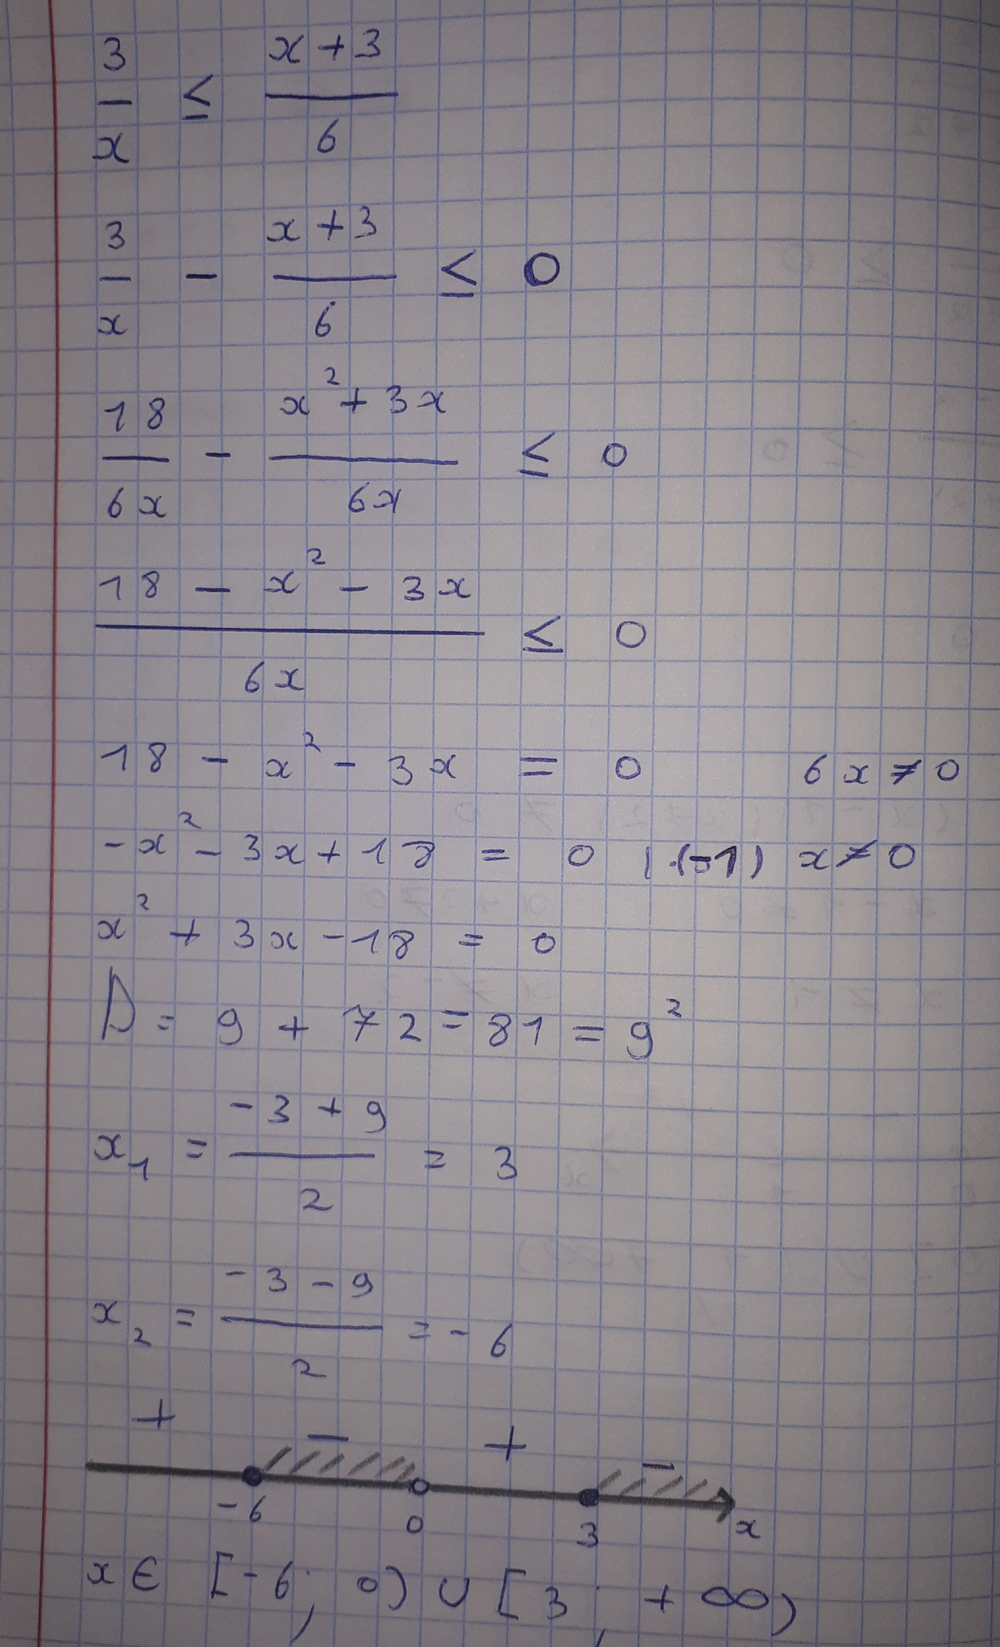 3/x ≤ (x+3)/6
3/x - (x+3)/6 ≤ 0
18/6x - (x²+3x)/6x ≤ 0
(18 - x² - 3x)/6x ≤ 0
18 - x² - 3x = 0 6x ≠ 0
-x² - 3x + 18 = 0 |·(-1) x ≠ 0
x² + 3x - 18 = 0
D = 9 + 72 = 81 = 9²
x₁ = (-3 + 9)/2 = 3
x₂ = (-3 - 9)/2 = -6
+ - + -
-6 0 3 x
x ∈ [-6; 0) ∪ [3; +∞)